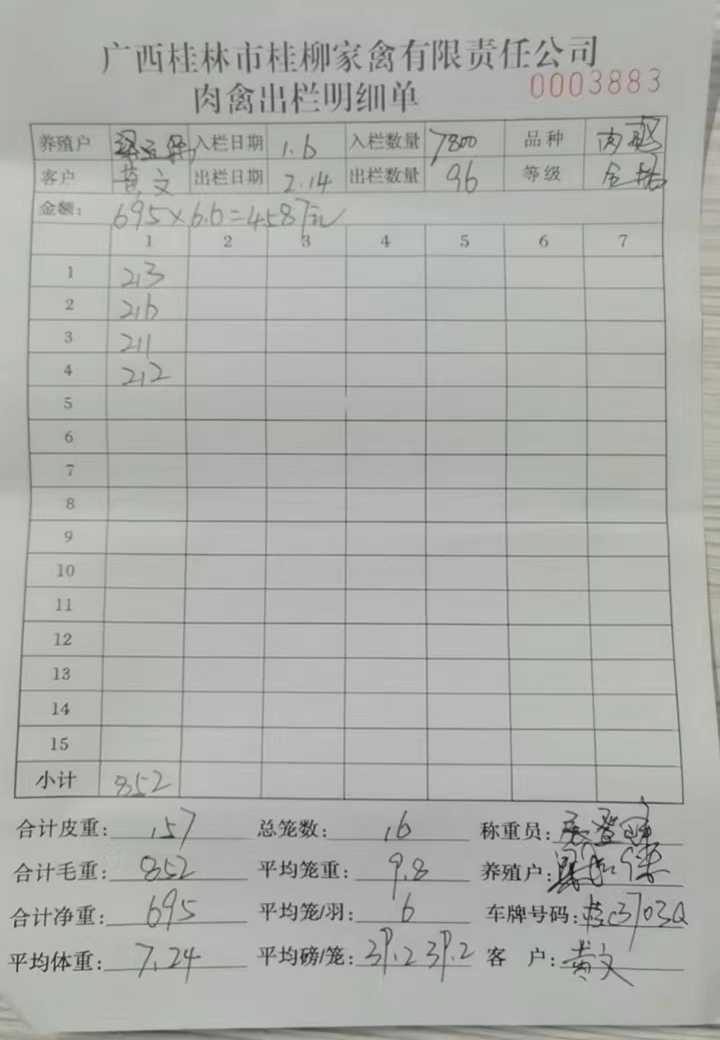 广西桂林市桂柳家禽有限责任公司
肉禽出栏明细单 0003883
养殖户 入栏日期 1.6 入栏数量 7800 品种 肉
客户 黄文 出栏日期 2.14 出栏数量 96 等级 全
金额: 695×6.6=4587元
1 2 3 4 5 6 7
1 213
2 216
3 211
4 212
5
6
7
8
9
10
11
12
13
14
15
小计 852
合计皮重: 157 总笼数: 16 称重员:
合计毛重: 852 平均笼重: 9.8 养殖户:
合计净重: 695 平均笼/羽: 6 车牌号码: 桂C3703Q
平均体重: 7.24 平均磅/笼: 39.2 39.2 客户: 黄文